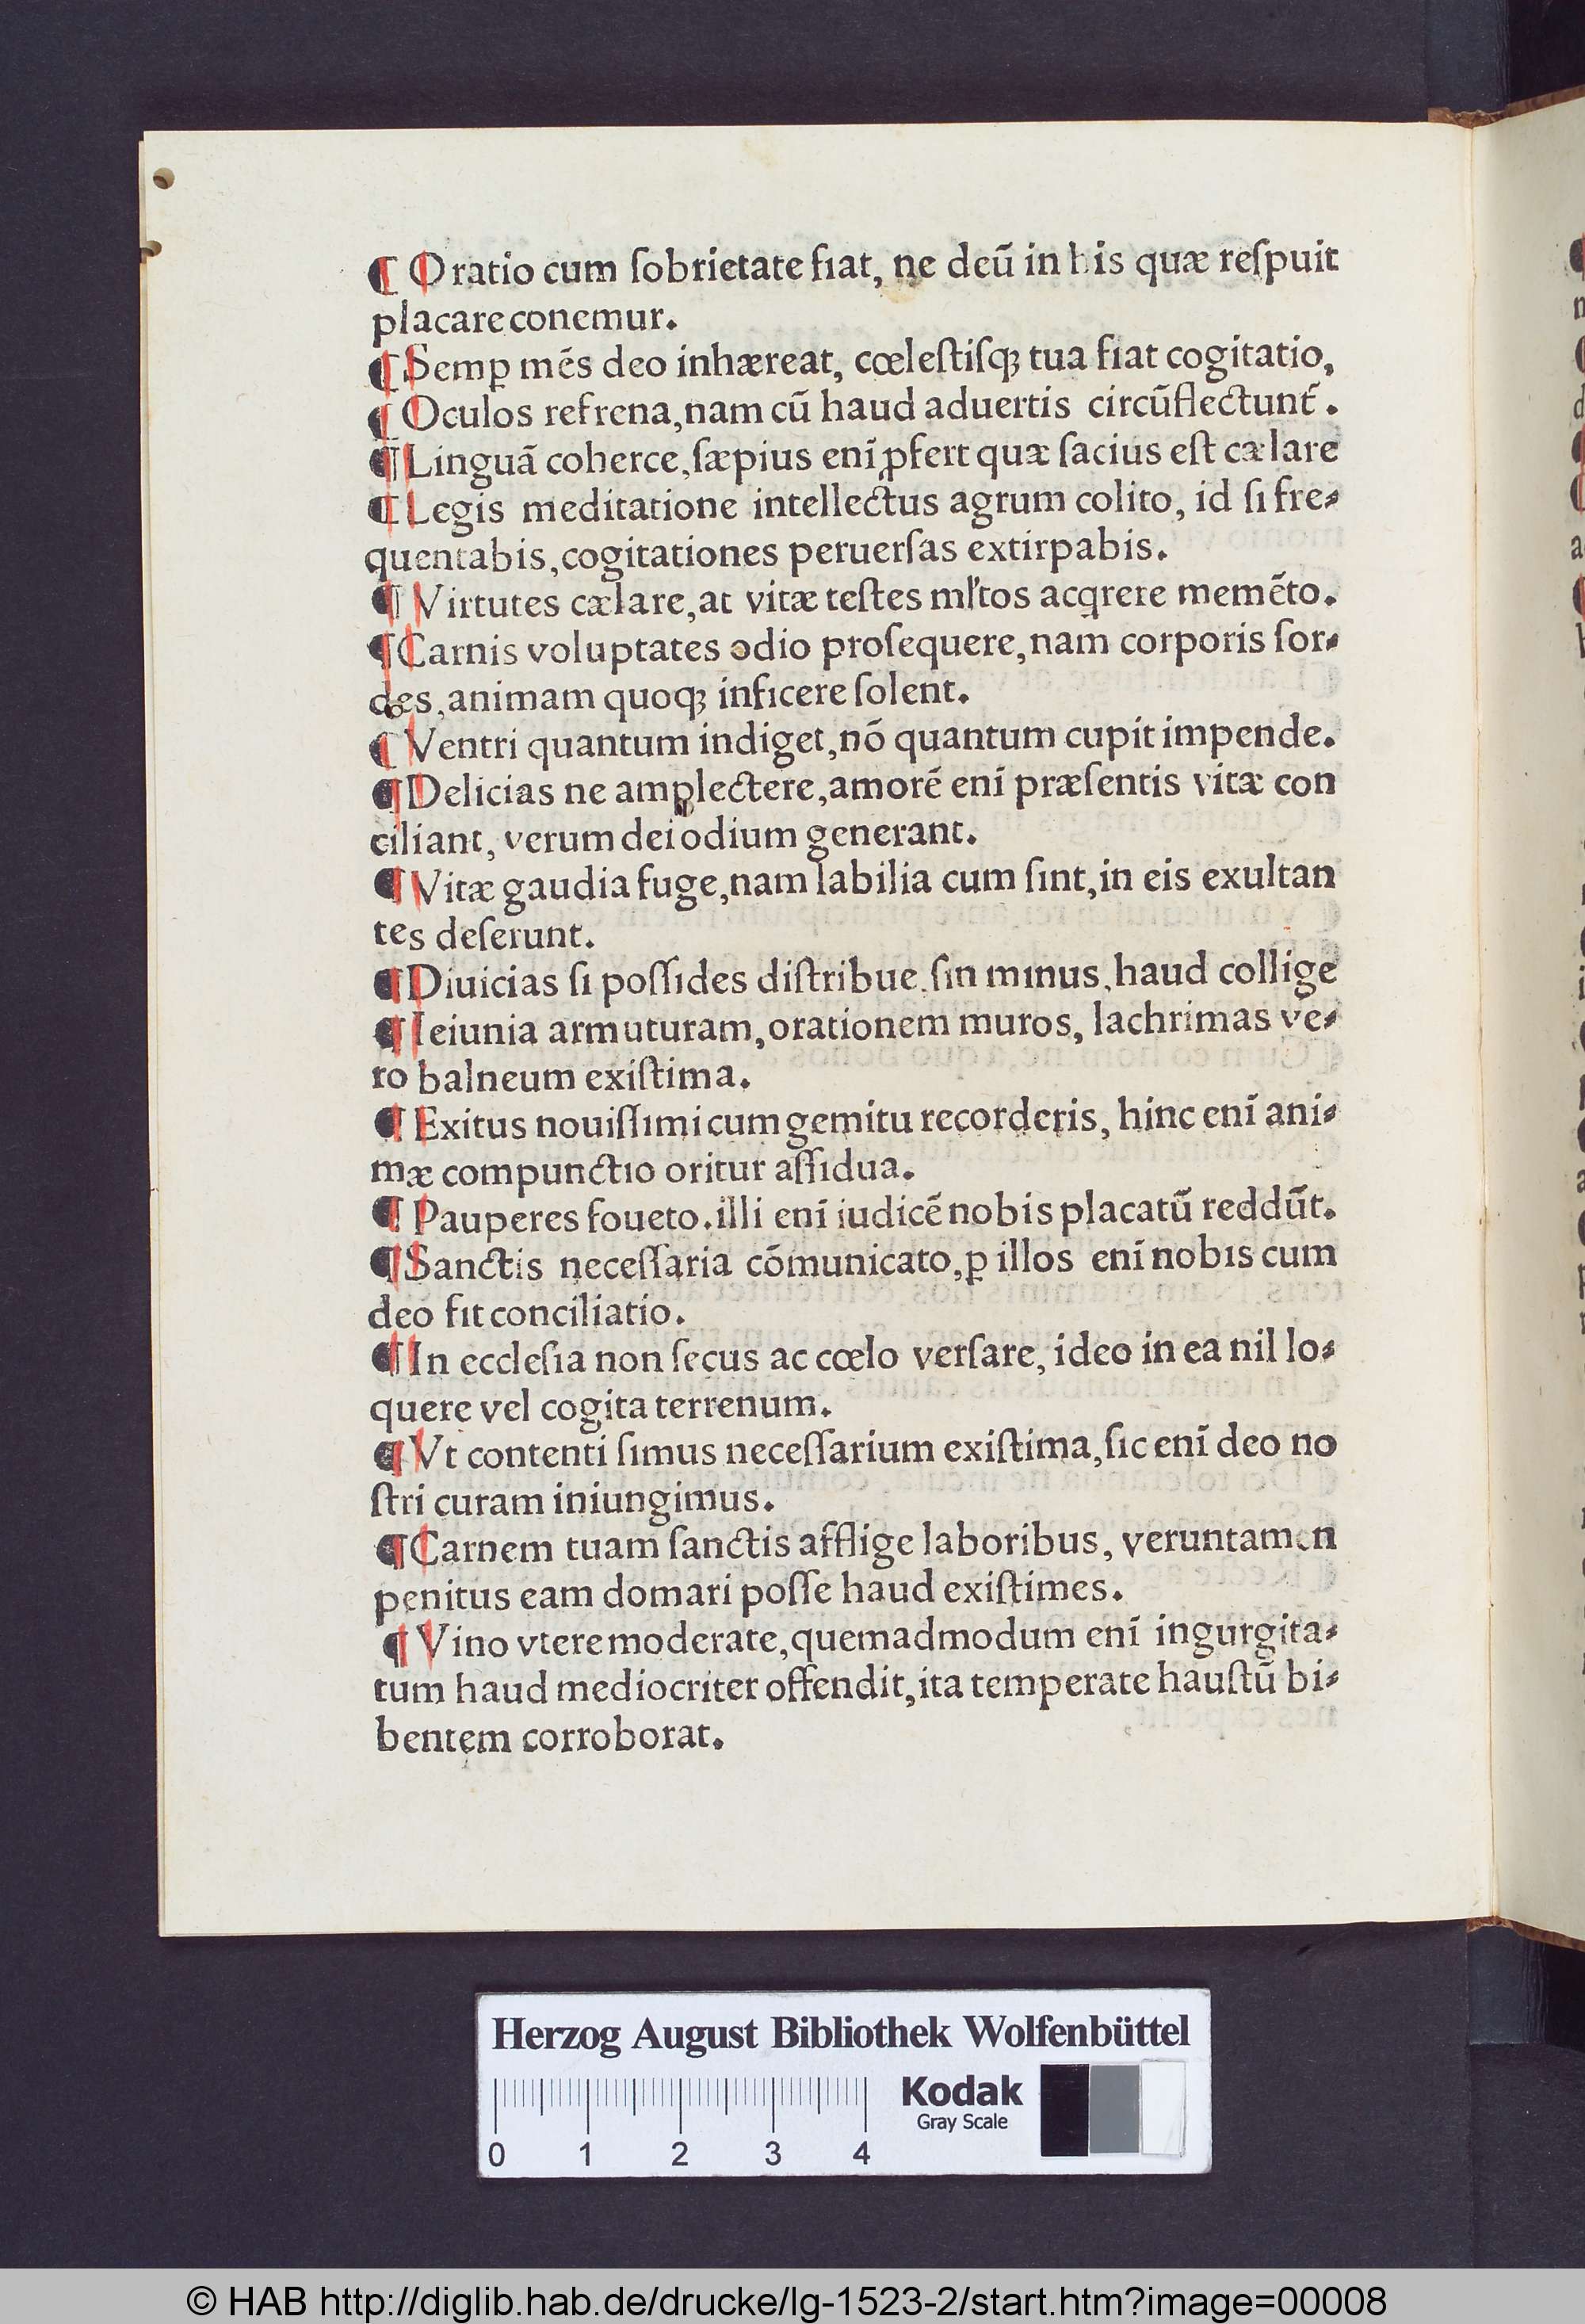 ¶ Oratio cum ſobrietate fiat, ne deū in his quæ reſpuit
placare conemur.
¶ Semꝑ mēs deo inhæreat, cœleſtiſqꝫ tua fiat cogitatio,
¶ Oculos refrena, nam cū haud aduertis circūflectunt̄.
¶ Linguā coherce, ſæpius enī ꝓfert quæ ſacius eſt cælare
¶ Legis meditatione intellectus agrum colito, id ſi fre⸗
quentabis, cogitationes peruerſas extirpabis.
¶ Virtutes cælare, at vitæ teſtes ml̓tos acqrere memēto.
¶ Carnis voluptates odio proſequere, nam corporis ſor⸗
des, animam quoqꝫ inficere ſolent.
¶ Ventri quantum indiget, nō quantum cupit impende.
¶ Delicias ne amplectere, amorē enī præſentis vitæ con
ciliant, verum dei odium generant.
¶ Vitæ gaudia fuge, nam labilia cum ſint, in eis exultan
tes deſerunt.
¶ Diuicias ſi poſſides diſtribue. ſin minus, haud collige
¶ Ieiunia armuturam, orationem muros, lachrimas ve⸗
ro balneum exiſtima.
¶ Exitus nouiſſimi cum gemitu recorderis, hinc enī ani⸗
mæ compunctio oritur aſſidua.
¶ Pauperes foueto. illi enī iudicē nobis placatū reddūt.
¶ Sanctis neceſſaria cōmunicato, ꝑ illos enī nobis cum
deo fit conciliatio.
¶ In eccleſia non ſecus ac cœlo verſare, ideo in ea nil lo⸗
quere vel cogita terrenum.
¶ Vt contenti ſimus neceſſarium exiſtima, ſic enī deo no
ſtri curam iniungimus.
¶ Carnem tuam ſanctis afflige laboribus, veruntamen
penitus eam domari poſſe haud exiſtimes.
¶ Vino vtere moderate, quemadmodum enī ingurgita⸗
tum haud mediocriter offendit, ita temperate hauſtū bi⸗
bentem corroborat.
Herzog August Bibliothek Wolfenbüttel
Kodak
Gray Scale
0 1 2 3 4
© HAB http://diglib.hab.de/drucke/lg-1523-2/start.htm?image=00008